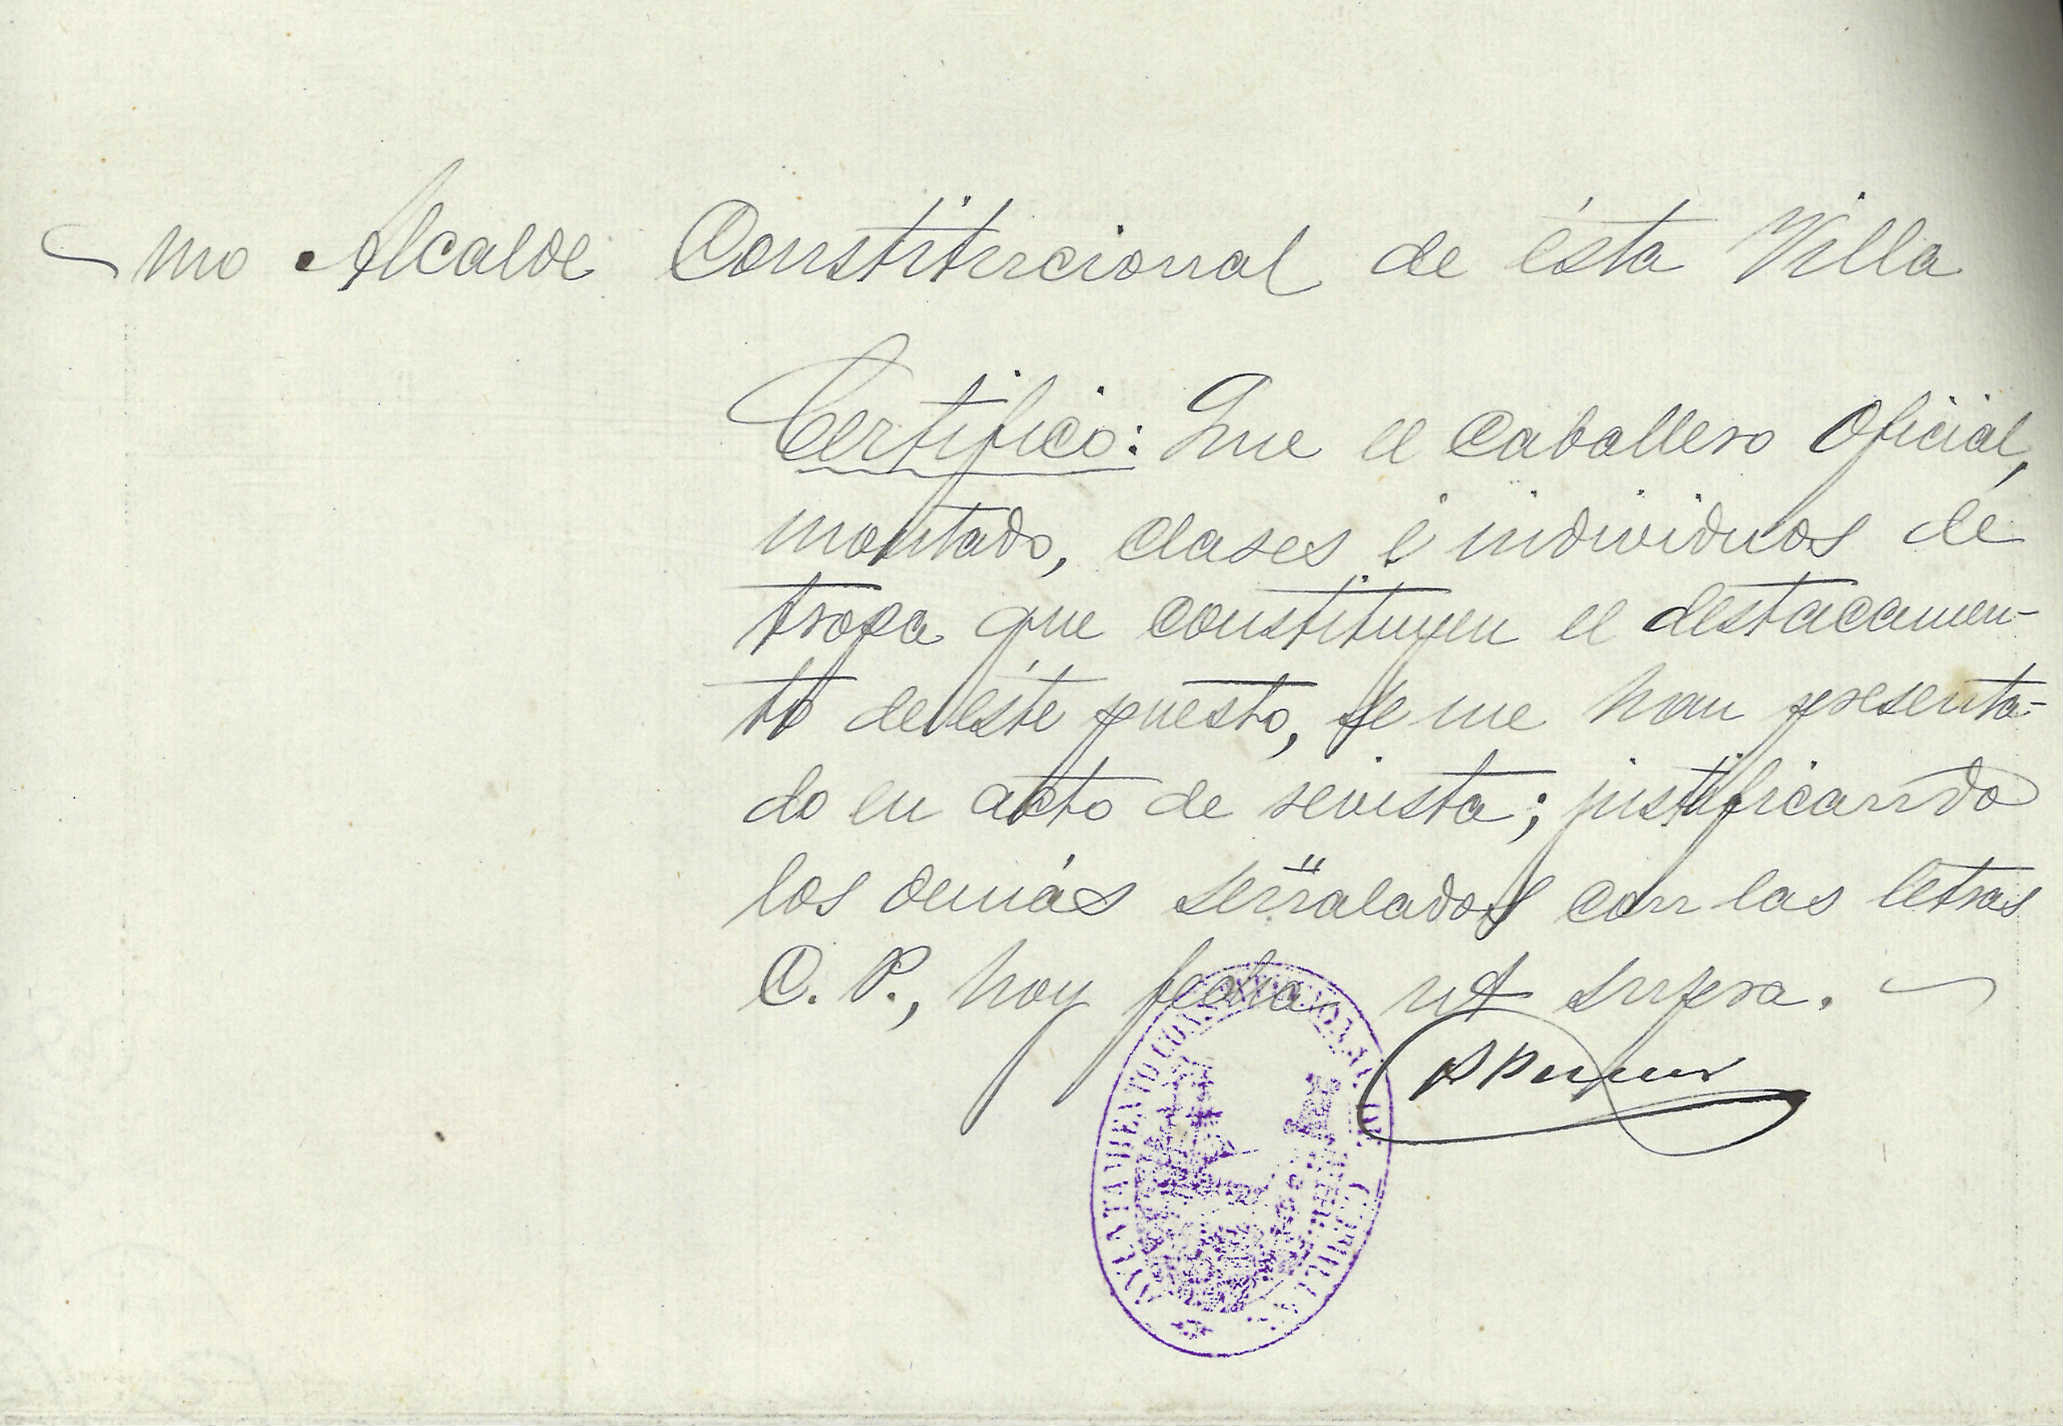 mo Alcalde Constitucional de ésta Villa
Certifico: Que el Caballero Oficial,
montado, clases é individuos de
tropa que constituyen el destacamen-
to de éste puesto, se me han presenta-
do en acto de revista; justificando
los demás señalados con las letras
C. P., hoy fecha ut supra.
AYUNTAMIENTO CONSTITUCIONAL DE